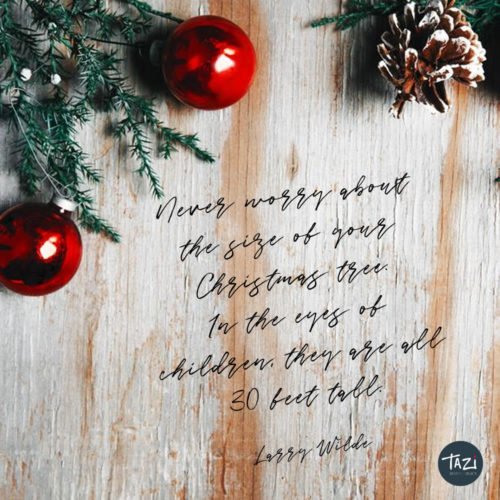 Never worry about
the size of your
Christmas tree.
In the eyes of
children, they are all
30 feet tall.
Larry Wilde
TAZI